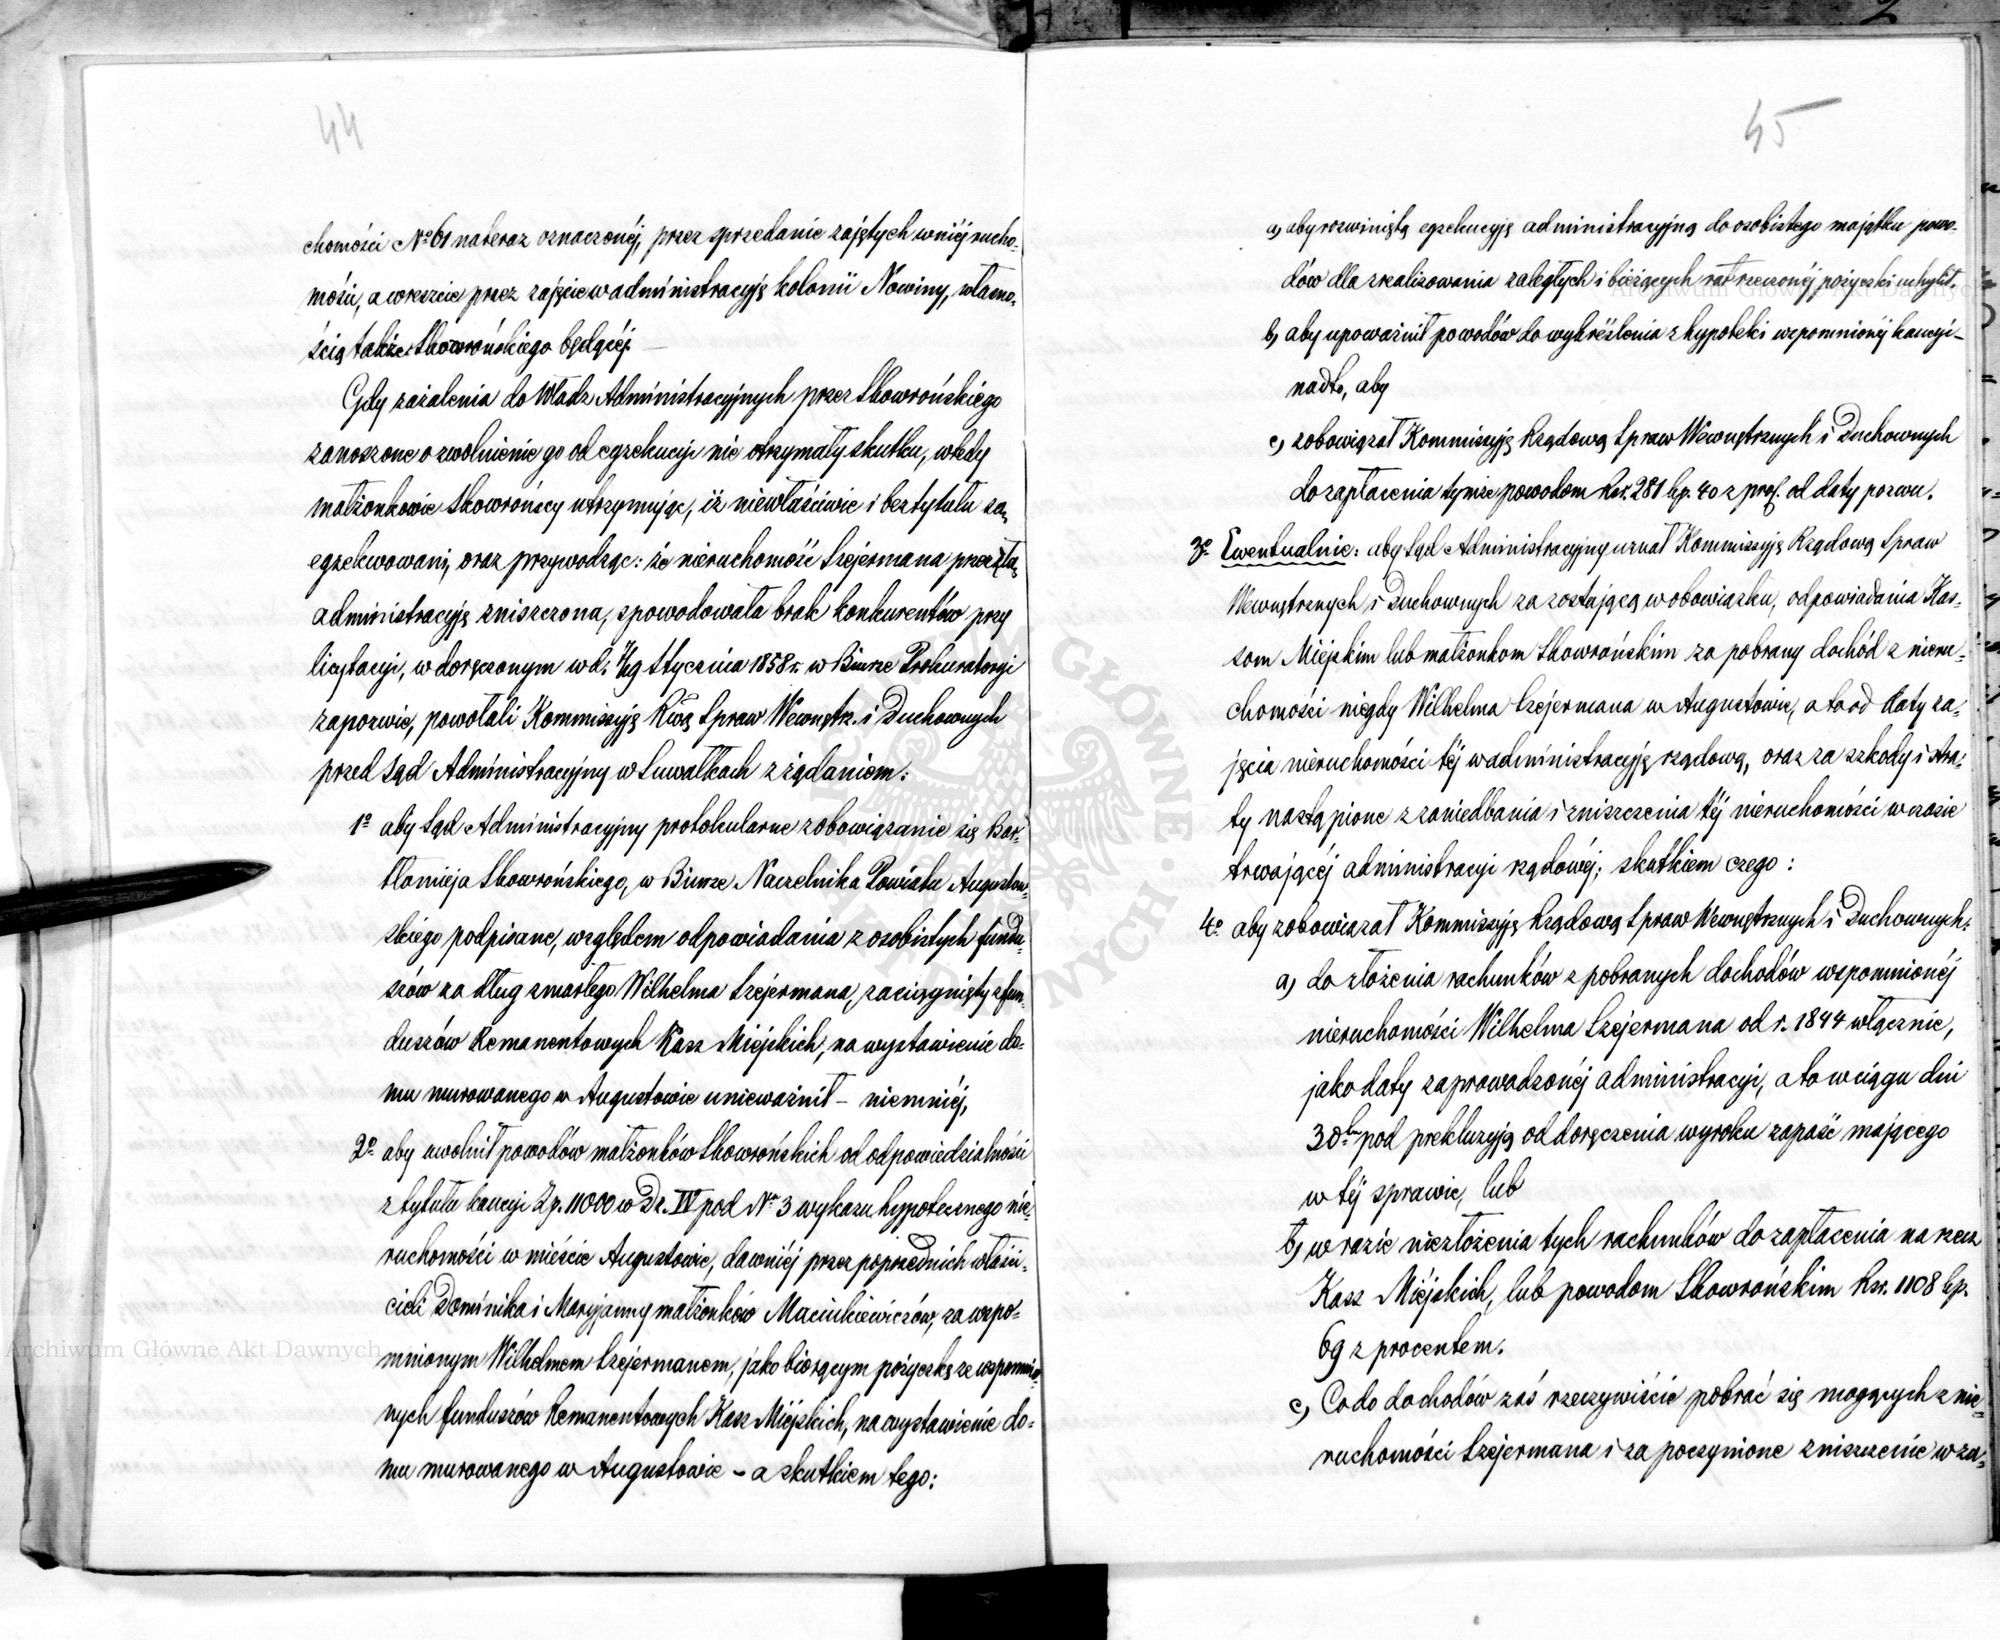 44
chomości No 61 nateraz oznaczonéj, przez sprzedanie zajętych w niéj rucho-
mości, a wreszcie przez zajęcie w administracyję kolonii Nowiny, własno-
ścią także Skowrońskiego będącéj. —
Gdy zażalenia do Władz Administracyjnych przez Skowrońskiego
zanoszone o zwolnienie go od egzekucyi nie otrzymały skutku, wtedy
małżonkowie Skowrońscy utrzymując, iż niewłaściwie i bez tytułu są
egzekwowani, oraz przywodząc: że nieruchomość Szejermana przez złą
administracyję zniszczona, spowodowała brak konkurentów przy
licytacyi, w doręczonym w d. 7/19 Stycznia 1858 r. w Biurze Prokuratoryi
zapozwie, powołali Kommissyję Rwą Spraw Wewnętr. i Duchownych
przed Sąd Administracyjny w Suwałkach z żądaniem:
1o aby Sąd Administracyjny protokularne zobowiązanie się Bar-
tłomieja Skowrońskiego, w Biurze Naczelnika Powiatu Augustow-
skiego podpisane, względem odpowiadania z osobistych fundu-
szów za dług zmarłego Wilhelma Szejermana, zaciągnięty z fun-
duszów Remanentowych Kass Miejskich, na wystawienie do-
mu murowanego w Augustowie unieważnił – niemniéj,
2o aby uwolnił powodów małżonków Skowrońskich od odpowiedzialności
z tytułu kaucyi Zp. 11000 w Dz. IV pod No 3 wykazu hypotecznego nie-
ruchomości w mieście Augustowie, dawniéj przez poprzednich właści-
cieli Dominika i Maryjanny małżonków Maciukiewiczów, za wspo-
mnionym Wilhelmem Szejermanem, jako biorącym pożyczkę ze wspomnio-
nych funduszów Remanentowych Kass Miejskich, na wystawienie do-
mu murowanego w Augustowie – a skutkiem tego:
45
a) aby rozwiniętą egzekucyję administracyjną do osobistego majątku powo-
dów dla zrealizowania zaległych i bieżących rat rzeczonéj pożyczki uchylił.
b) aby upoważnił powodów do wykreślenia z hypoteki wspomnionéj kaucyi –
nadto, aby
c) zobowiązał Kommissyję Rządową Spraw Wewnętrznych i Duchownych
do zapłacenia tymże powodom Rsr. 281 kp. 40 z prof. od daty pozwu.
3o Ewentualnie: aby Sąd Administracyjny uznał Kommissyję Rządową Spraw
Wewnętrznych i Duchownych za zostającą w obowiązku, odpowiadania Kas-
som Miejskim lub małżonkom Skowrońskim za pobrany dochód z nieru-
chomości niegdy Wilhelma Szejermana w Augustowie, a to od daty za-
jęcia nieruchomości téj w administracyję rządową, oraz za szkody i stra-
ty nastąpione z zaniedbania i zniszczenia téj nieruchomości w czasie
trwającéj administracyi rządowéj; skutkiem czego:
4o aby zobowiązał Kommissyję Rządową Spraw Wewnętrznych i Duchownych:
a) do złożenia rachunków z pobranych dochodów wspomnionéj
nieruchomości Wilhelma Szejermana od r. 1844 włącznie,
jako daty zaprowadzonéj administracyi, a to w ciągu dni
30tu pod prekluzyją od doręczenia wyroku zapaść mającego
w téj sprawie, lub
b) w razie niezłożenia tych rachunków do zapłacenia na rzecz
Kass Miejskich, lub powodom Skowrońskim Rsr. 1108 kp.
69 z procentem.
c) Co do dochodów zaś rzeczywiście pobrać się mogących z nie-
ruchomości Szejermana i za poczynione zniszczenie w za-
Archiwum Główne Akt Dawnych
Archiwum Główne Akt Dawnych